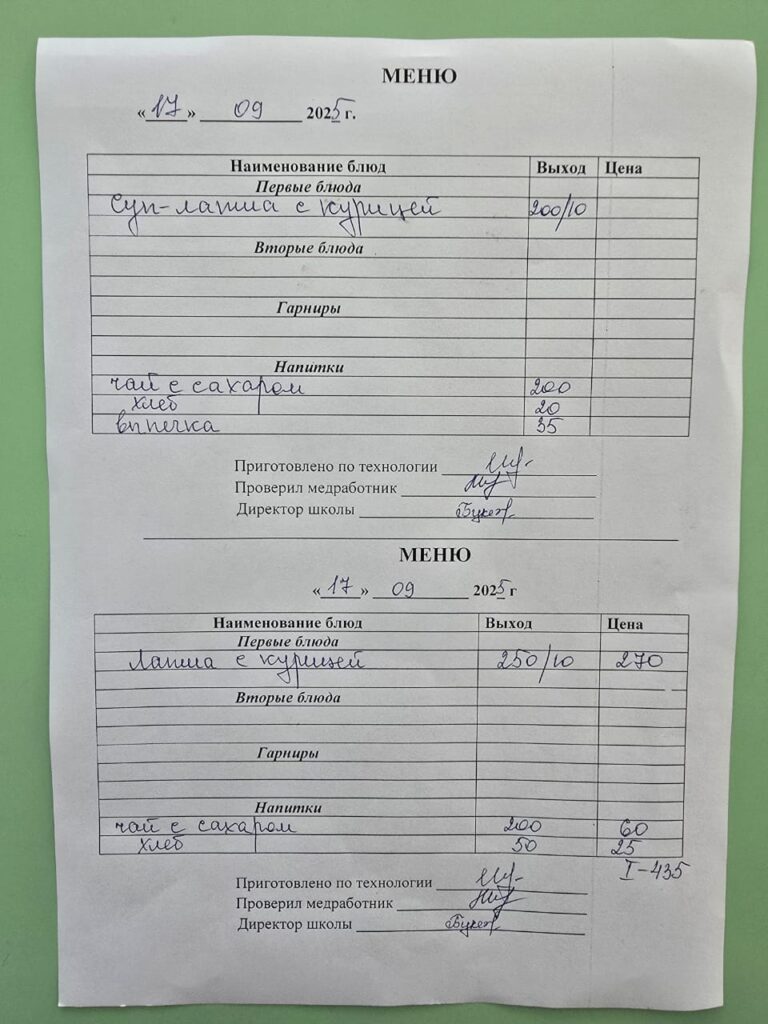 МЕНЮ
«17» 09 2025 г.
Наименование блюд Выход Цена
Первые блюда
Суп-лапша с курицей 200/10
Вторые блюда
Гарниры
Напитки
чай с сахаром 200
хлеб 20
выпечка 35
Приготовлено по технологии
Проверил медработник
Директор школы
МЕНЮ
«17» 09 2025 г
Наименование блюд Выход Цена
Первые блюда
Лапша с курицей 250/10 270
Вторые блюда
Гарниры
Напитки
чай с сахаром 200 60
хлеб 50 25
I-435
Приготовлено по технологии
Проверил медработник
Директор школы